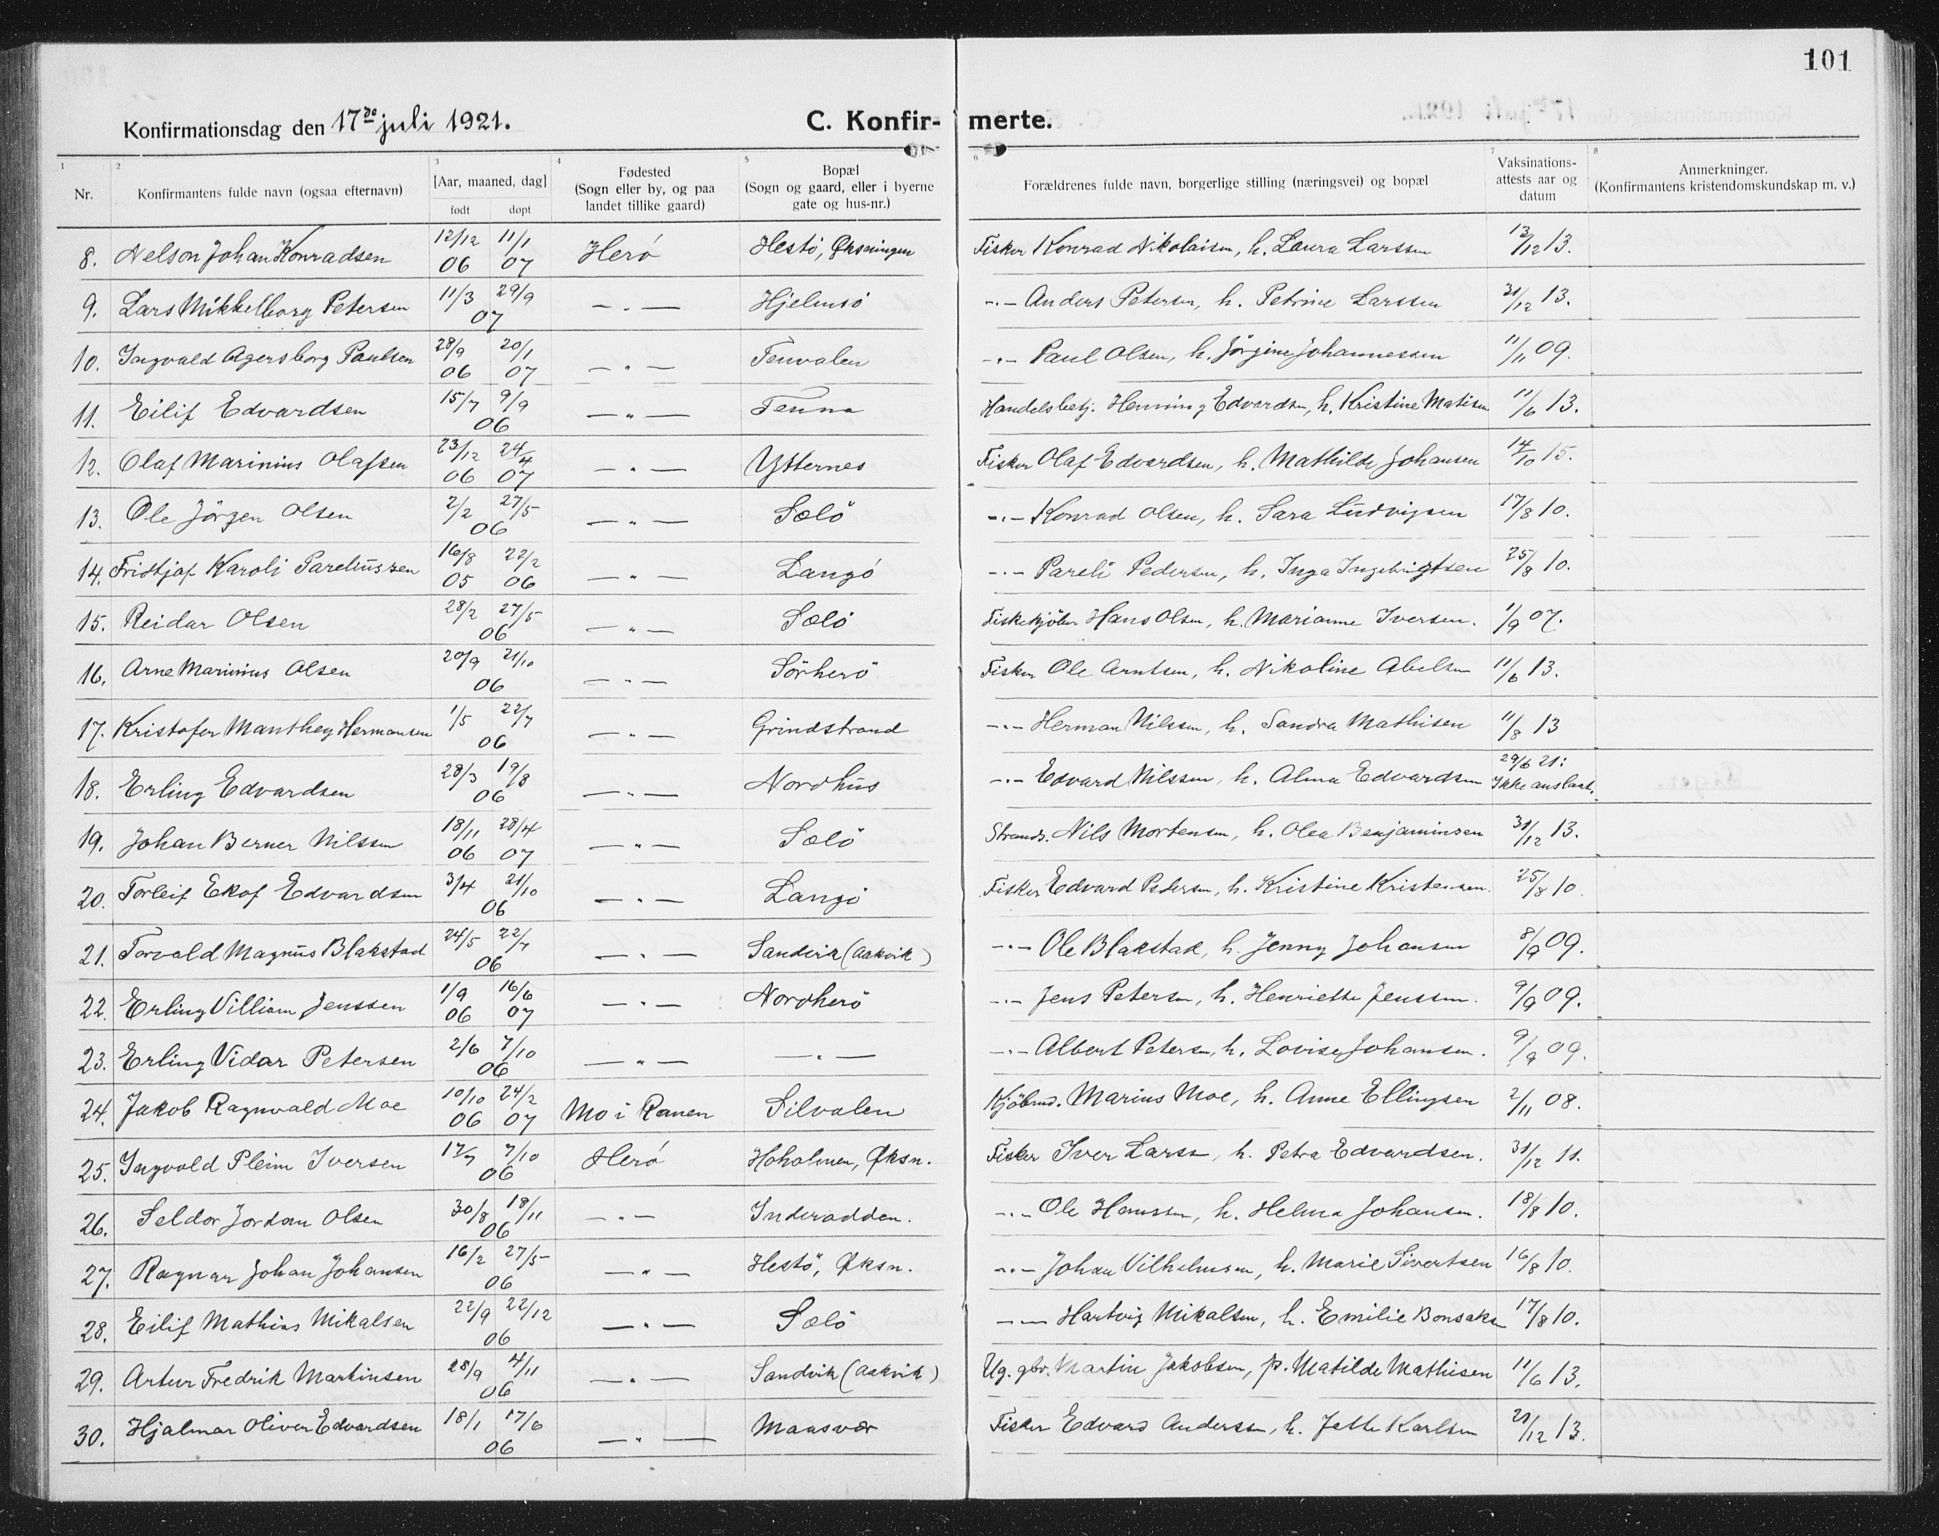 101
Konfirmationsdag den 17de juli 1921. C. Konfirmerte.
1 2 3 4 5 6 7 8
Nr. Konfirmantens fulde navn (ogsaa efternavn) [Aar, maaned, dag] født døpt Fødested (Sogn eller by, og paa landet tillike gaard) Bopæl (Sogn og gaard, eller i byerne gate og hus-nr.) Forældrenes fulde navn, borgerlige stilling (næringsvei) og bopæl Vaksinationsattests aar og datum Anmerkninger. (Konfirmantens kristendomskundskap m. v.)
8. Nelson Johan Konradsen 12/12 06 11/1 07 Herö Hestö, Øksningen Fisker Konrad Nikolaisen, h. Laura Larssen 13/12 13.
9. Lars Mikkelborg Petersen 11/3 29/9 07 —"— Hjelmsö -"- Anders Petersen, h. Petrine Larssen 31/12 13.
10. Ingvald Agersborg Paulsen 28/9 06 20/1 07 —"— Tenvalen -"- Paul Olsen, h. Jörgine Johannessen 11/11 09.
11. Eilif Edvardsen 15/7 9/9 06 —"— Tenna Handelsbetj. Henning Edvardsen, h. Kristine Matisen 11/6 13.
12. Olaf Marinius Olafsen 23/12 06 24/4 07 —"— Ytternes Fisker Olaf Edvardsen, h. Mathilde Johansen 14/10 15.
13. Ole Jörgen Olsen 2/2 27/5 06 —"— Sælö -"- Konrad Olsen, h. Sara Ludvigsen 17/8 10.
14. Fridtjof Karoli Pareliussen 16/8 05 22/2 06 —"— Langö -"- Pareli Pedersen, h. Inga Ingebrigtsen 25/8 10.
15. Reidar Olsen 28/2 27/5 06 —"— Sælö Fiskekjöber Hans Olsen, h. Marianne Iversen. 1/9 07.
16. Arne Marinius Olsen 20/9 21/10 06 —"— Sörherö Fisker Ole Arntsen, h. Nikoline Abelsen 11/6 13.
17. Kristofer Manthey Hermansen 1/5 22/7 06 —"— Grindstrand -"- Herman Nilssen, h. Sandra Mathisen 11/8 13
18. Erling Edvardsen 28/3 19/8 06 —"— Nordhus -"- Edvard Nilssen, h. Alma Edvardsen 29/6 21: Ikke anslaat.
19. Johan Berner Nilssen 18/11 06 28/4 07 —"— Sælö Strands. Nils Mortensen, h. Olea Benjaminsen 31/12 13.
20. Torleif Ekof Edvardsen 3/4 21/10 06 —"— Langö Fisker Edvard Pedersen, h. Kristine Kristensen. 25/8 10.
21. Torvald Magnus Blakstad 24/5 22/7 06 —"— Sandvik (Aakvik) -"- Ole Blakstad, h. Jenny Johansen 8/9 09.
22. Erling Villiam Jenssen 1/9 06 16/6 07 —"— Nordherö -"- Jens Petersen, h. Henriette Jenssen. 9/9 09.
23. Erling Vidar Petersen 2/6 7/10 06 —"— —"— -"- Albert Petersen, h. Lovise Johansen. 9/9 09.
24. Jakob Ragnvald Moe 10/10 06 24/2 07 Mo i Ranen Silvalen Kjöbmd. Marius Moe, h. Anne Ellingsen 2/11 08.
25. Ingvald Pleim Iversen 17/7 7/10 06 Herö Hoholmen, Øksn. Fisker Iver Larsen, h. Petra Edvardsen. 31/12 11.
26. Seldor Jordan Olsen 30/8 18/11 06 —"— Inderodden. -"- Ole Hanssen, h. Helma Johansen. 18/8 10.
27. Ragnar Johan Johansen 16/2 27/5 06 —"— Hestö, Øksn. -"- Johan Vilhelmsen, h. Marie Sivertsen 16/8 10.
28. Eilif Mathias Mikalsen 22/9 22/12 06 —"— Sælö -"- Hartvig Mikalsen, h. Emilie Bonsaksen 17/8 10.
29. Artur Fredrik Martinsen 28/9 4/11 06 —"— Sandvik (Aakvik) Ug. gbr. Martin Jakobsen, p. Matilde Mathisen 11/6 13.
30. Hjalmar Oliver Edvardsen 18/1 17/6 06 —"— Maasvær Fisker Edvard Anderssen, h. Jette Karlsen 21/12 13.